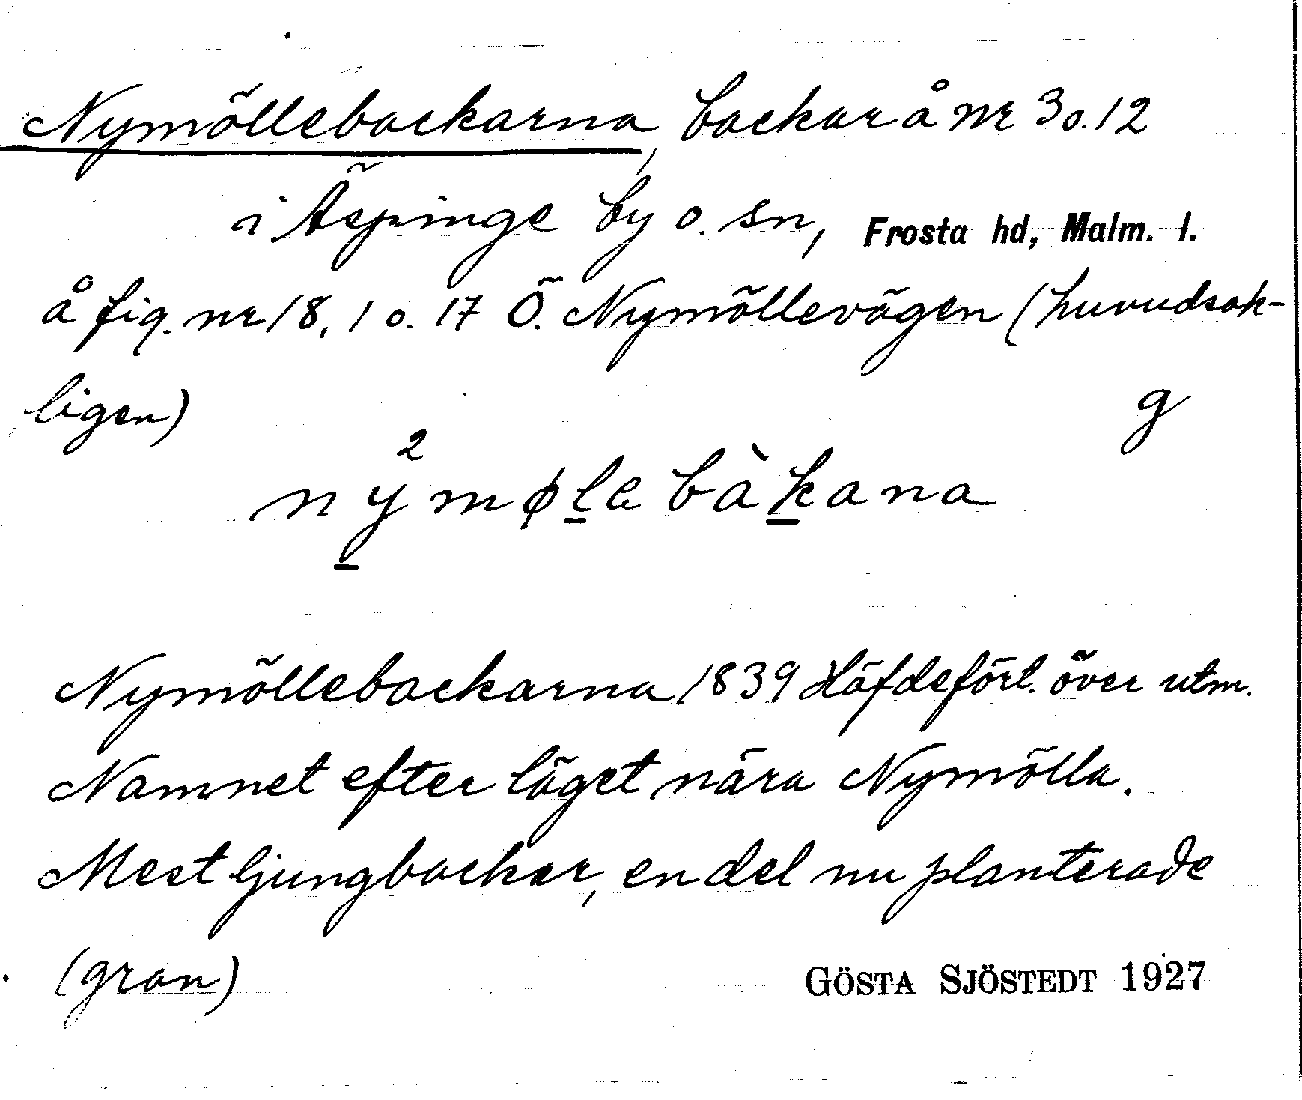 Nymöllebackarna, backar å nr 3 o. 12
i Äspinge by o. sn, Frosta hd, Malm. l.
å fig. nr 18, 1 o. 17 Ö. Nymöllevägen (huvudsak-
ligen)
g
2
nymøle bàkana
Nymöllebackarna 1839 Häfdeförl. över utm.
Namnet efter läget nära Nymölla.
Mest ljungbackar, en del nu planterade
(gran)
GÖSTA SJÖSTEDT 1927